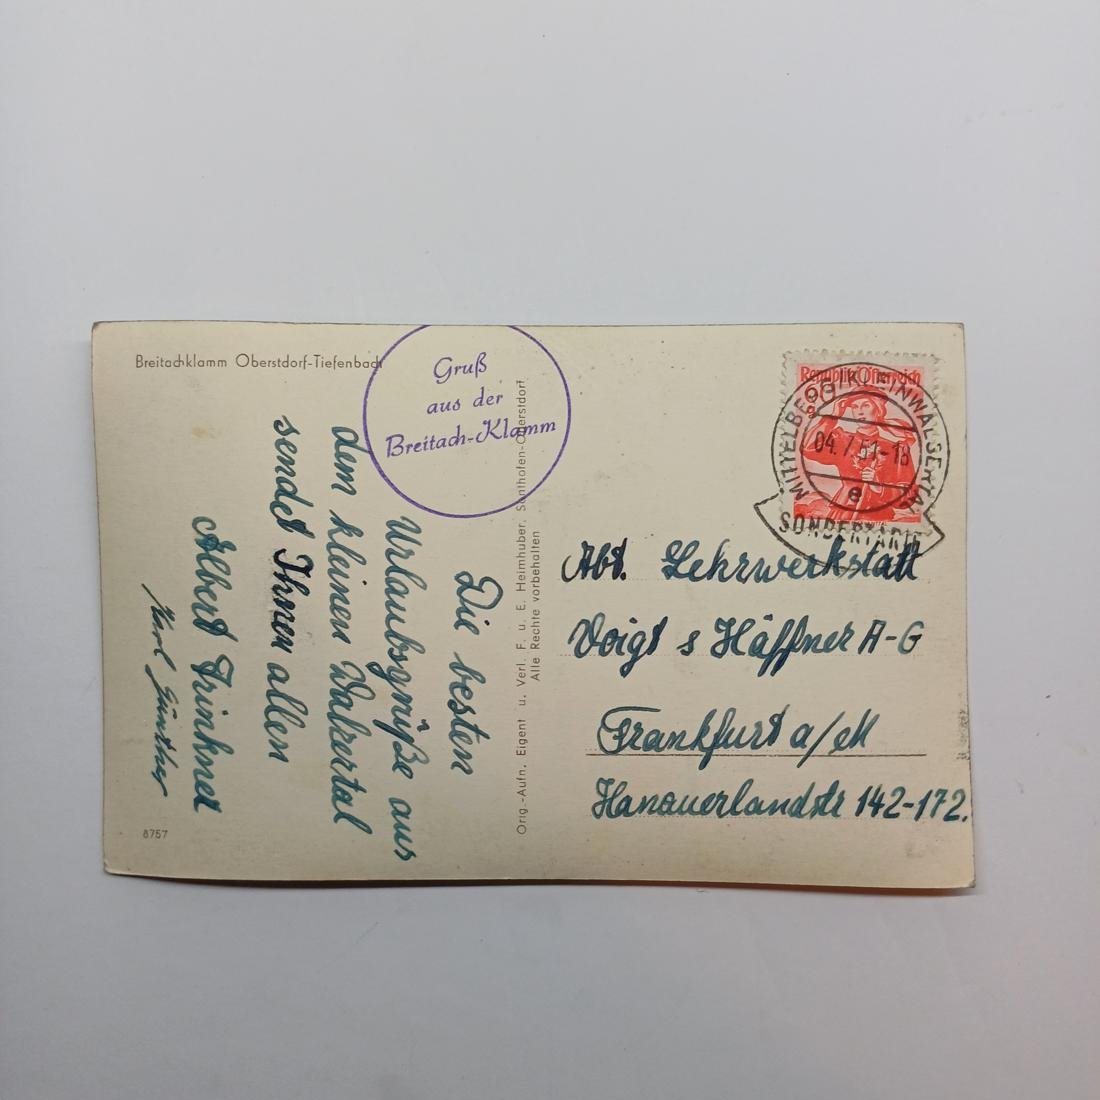 Breitachklamm Oberstdorf-Tiefenbach
Gruß
aus der
Breitach-Klamm
Die besten
Urlaubsgrüße aus
dem kleinen Walsertal
sendet Ihnen allen
Albert Trinkner
Karl Günther
8757
Orig.-Aufn. Eigent u. Verl. F. u. E. Heimhuber, Sonthofen-Oberstdorf
Alle Rechte vorbehalten
Republik Österreich
MITTELBERG (KLEINWALSERTAL)
04.7.51-18
e
SONDERTARIF
Abt. Lehrwerkstatt
Voigt s Häffner A-G
Frankfurt a/M
Hanauerlandstr 142-172.